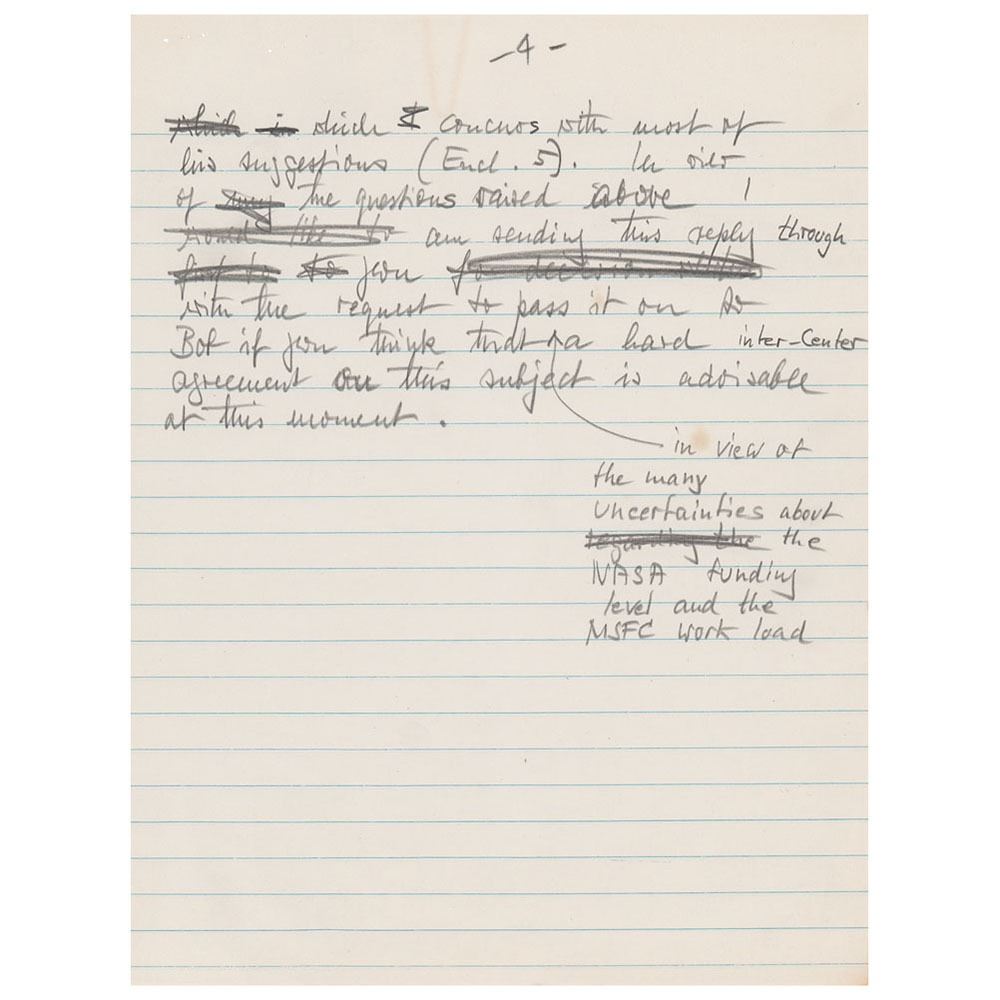 - 4 -
which in which I concurs with most of
his suggestions (Encl. 5). In view
of the questions raised above I
would like to am sending this reply through
to you for decision
with the request to pass it on to
Bob if you think that a hard inter-Center
agreement on this subject is advisable
at this moment.
in view of
the many
uncertainties about
regarding the the
NASA funding
level and the
MSFC work load